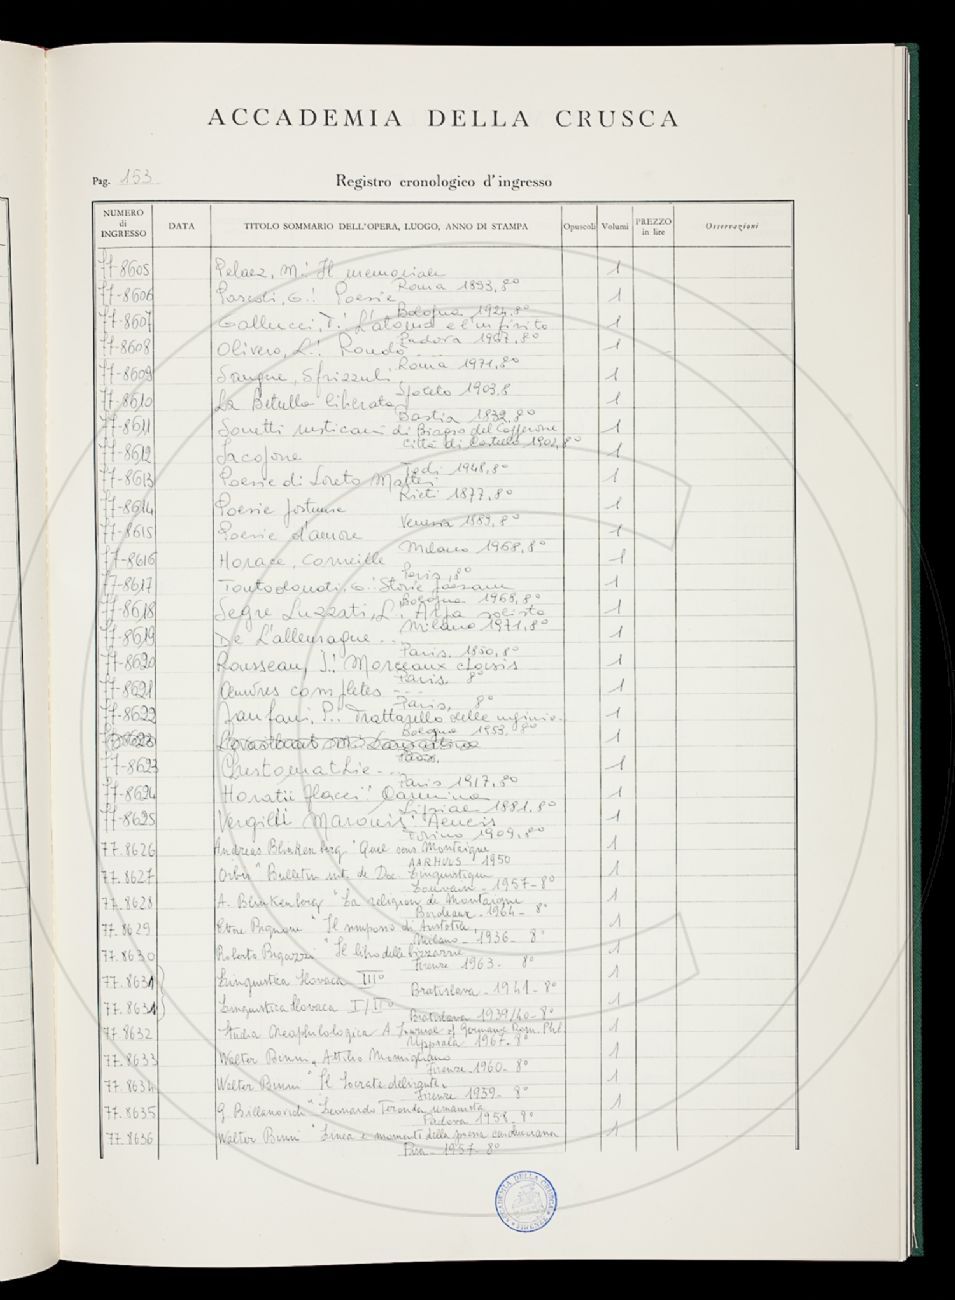 ACCADEMIA DELLA CRUSCA
Pag. 153
Registro cronologico d'ingresso
NUMERO di INGRESSO DATA TITOLO SOMMARIO DELL'OPERA, LUOGO, ANNO DI STAMPA Opuscoli Volumi PREZZO in lire Osservazioni
77-8605 Pelaez, M.: Il memoriale 1
Roma 1893, 8º
77-8606 Pascoli, G.: Poesie 1
Bologna 1924, 8º
77-8607 Gallucci, T.: L'atomo e l'infinito 1
Padova 1967, 8º
77-8608 Olivero, L.: Rondò 1
Roma 1971, 8º
77-8609 Sangue, Sprizzuli 1
Spoleto 1903, 8
77-8610 La Betulla liberata 1
Bastia 1832, 8º
77-8611 Sonetti rusticani di Biagio del Capperone 1
Città di Castello 1902, 8º
77-8612 Jacopone 1
Todi 1948, 8º
77-8613 Poesie di Loreto Mattei 1
Rieti 1877, 8º
77-8614 Poesie postume 1
Venezia 1889, 8º
77-8615 Poesie d'amore 1
Milano 1968, 8º
77-8616 Horace, Corneille 1
Paris, 8º
77-8617 Toutodonati, G.: Storie paesane 1
Bologna 1968, 8º
77-8618 Segre Luzzati, L.: Alfa 1
Milano 1971, 8º
77-8619 De L'allemagne ... 1
Paris, 1850, 8º
77-8620 Rousseau, J.: Morceaux choisis 1
Paris, 8º
77-8621 Oeuvres completes ... 1
Paris, 8º
77-8622 Fanfani, P.: Trattatello delle 1
Bologna 1953, 8º
1
Paris,
77-8623 Chrestomathie ... 1
Paris 1917, 8º
77-8624 Horatii Flacci: Carmina 1
Lipsiae 1881, 8º
77-8625 Vergilii Maronis: Aeneis 1
Torino 1909, 8º
77.8626 Andreas Blinkenberg "Quel sens Montaigne 1
AARHUS 1950
77.8627 Orbis "Bulletin int. de Doc. Linguistique 1
Louvain - 1957 - 8º
77.8628 A. Blinkenberg "La religion de Montaigne 1
Bordeaux - 1964 - 8º
77.8629 Ettore Bignone "Il simposio di Aristotele 1
Milano - 1936 - 8º
77.8630 Roberto Ragazzi "Il libro delle bizzarrie 1
Firenze 1963 - 8º
77.8631 Linguistica Slovaca IIIº 1
Bratislava - 1941 - 8º
77.8631 Linguistica Slovaca I/IIº 1
Bratislava 1939/40 - 8º
77.8632 Studia Neophilologica A Journal of Germanic Rom. Phil. 1
Uppsala 1967 - 8º
77.8633 Walter Binni "Attilio Momigliano 1
Firenze - 1960 - 8º
77.8634 Walter Binni "Il Socrate delirante 1
Firenze 1959 - 8º
77.8635 G. Billanovich "Leonardo Teronda umanista 1
Padova 1958 - 8º
77.8636 Walter Binni "Linea e momenti della poesia carducciana 1
Pisa - 1957 - 8º
ACCADEMIA DELLA CRUSCA FIRENZE